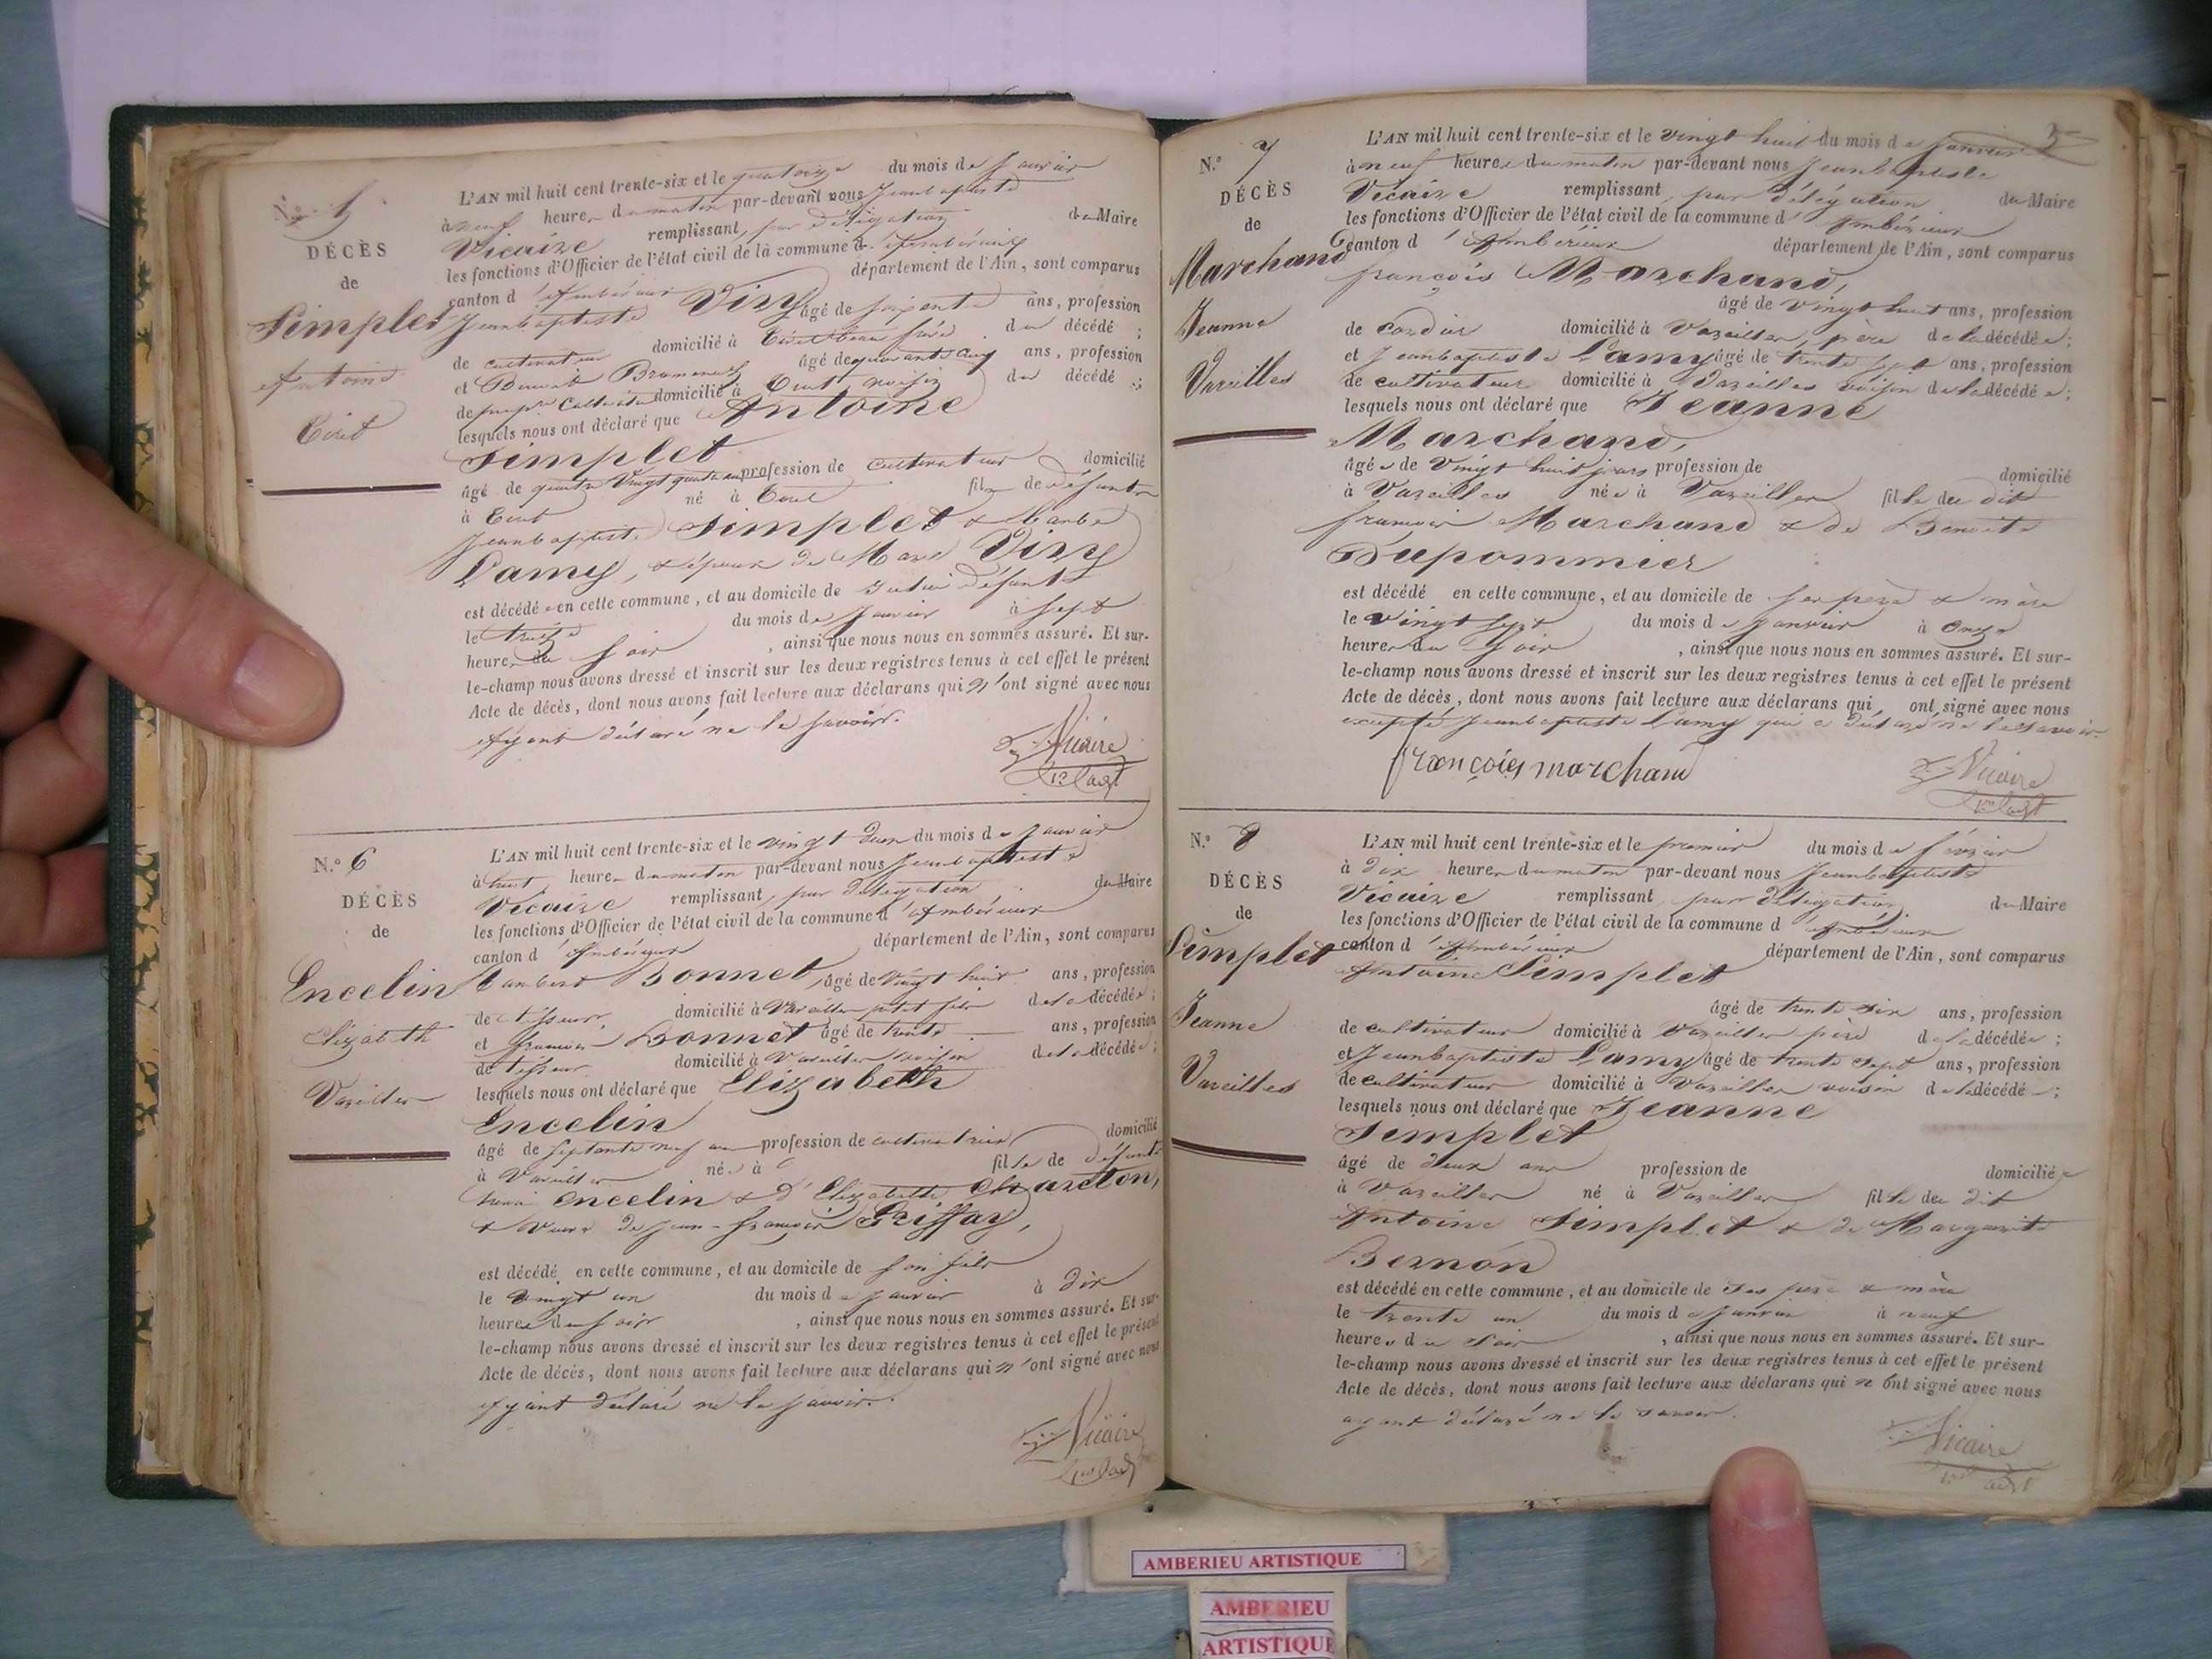 N.o 5
DÉCÈS
de
Simplet
Antoine
Tiret
L'AN mil huit cent trente-six et le quatorze du mois de Janvier
à neuf heures du matin par-devant nous Jeanbaptiste
Vicaire remplissant, par délégation du Maire
les fonctions d'Officier de l'état civil de la commune d'Ambérieux
canton d'Ambérieux département de l'Ain, sont comparus
Jeanbaptiste Viry âgé de soixante ans, profession
de cultivateur domicilié à Tiret beau frère du décédé;
et Benoit âgé de quarante cinq ans, profession
de domicilié à Tiret voisin du décédé;
lesquels nous ont déclaré que Antoine
Simplet
âgé de quatre vingt quatre ans profession de cultivateur domicilié
à Tiret né à Tiret fils de défunts
Jeanbaptiste Simplet & Barbe
Lamy, & époux de Marie Viry
est décédé en cette commune, et au domicile de du dit défunt
le treize du mois de Janvier à sept
heures du soir, ainsi que nous nous en sommes assuré. Et sur-
le-champ nous avons dressé et inscrit sur les deux registres tenus à cet effet le présent
Acte de décès, dont nous avons fait lecture aux déclarans qui n'ont signé avec nous
Ayant déclaré ne le savoir.
Vicaire
N.o 6
DÉCÈS
de
Encelin
Elizabeth
Vareilles
L'AN mil huit cent trente-six et le vingt deux du mois de Janvier
à huit heures du matin par-devant nous Jeanbaptiste
Vicaire remplissant, par délégation du Maire
les fonctions d'Officier de l'état civil de la commune d'Ambérieux
canton d'Ambérieux département de l'Ain, sont comparus
Lambert Bonnet, âgé de vingt huit ans, profession
de tisseur, domicilié à Vareilles petit fils de la décédée;
et francois Bonnet âgé de trente ans, profession
de tisseur domicilié à Vareilles voisin de la décédée;
lesquels nous ont déclaré que Elizabeth
Encelin
âgé de septante neuf ans profession de cultivatrice domicilié
à Vareilles née à fille de défunts
Encelin & d'Elizabeth Charelon,
& veuve de Jean-francois Griffay,
est décédé en cette commune, et au domicile de son fils
le vingt un du mois de Janvier à dix
heures du soir, ainsi que nous nous en sommes assuré. Et sur-
le-champ nous avons dressé et inscrit sur les deux registres tenus à cet effet le présent
Acte de décès, dont nous avons fait lecture aux déclarans qui n'ont signé avec nous
Ayant déclaré ne le savoir.
Vicaire
3
N.o 7
DÉCÈS
de
Marchand
Jeanne
Vareilles
L'AN mil huit cent trente-six et le vingt huit du mois de Janvier
à neuf heures du matin par-devant nous Jeanbaptiste
Vicaire remplissant, par délégation du Maire
les fonctions d'Officier de l'état civil de la commune d'Ambérieux
canton d'Ambérieux département de l'Ain, sont comparus
françois Marchand,
âgé de vingt huit ans, profession
de cordier domicilié à Vareilles, père de la décédée;
et Jeanbaptiste Lamy âgé de trente sept ans, profession
de cultivateur domicilié à Vareilles voisin de la décédée;
lesquels nous ont déclaré que Jeanne
Marchand,
âgée de vingt huit jours profession de domicilié
à Vareilles née à Vareilles fille du dit
francois Marchand & de Benoite
Dupommier
est décédé en cette commune, et au domicile de ses père & mère
le vingt sept du mois de Janvier à onze
heures du soir, ainsi que nous nous en sommes assuré. Et sur-
le-champ nous avons dressé et inscrit sur les deux registres tenus à cet effet le présent
Acte de décès, dont nous avons fait lecture aux déclarans qui ont signé avec nous
excepté Jeanbaptiste Lamy qui a déclaré ne le savoir.
françois marchand
Vicaire
N.o 8
DÉCÈS
de
Simplet
Jeanne
Vareilles
L'AN mil huit cent trente-six et le premier du mois de février
à dix heures du matin par-devant nous Jeanbaptiste
Vicaire remplissant par délégation du Maire
les fonctions d'Officier de l'état civil de la commune d'Ambérieux
canton d'Ambérieux département de l'Ain, sont comparus
Antoine Simplet
âgé de trente six ans, profession
de cultivateur domicilié à Vareilles père de la décédée;
et Jeanbaptiste Lamy âgé de trente sept ans, profession
de cultivateur domicilié à Vareilles voisin de la décédé;
lesquels nous ont déclaré que Jeanne
Simplet
âgé de deux ans profession de domiciliée
à Vareilles né à Vareilles fille du dit
Antoine Simplet & de Marguerite
Bernon
est décédé en cette commune, et au domicile de ses père & mère
le trente un du mois de Janvier à neuf
heures du soir, ainsi que nous nous en sommes assuré. Et sur-
le-champ nous avons dressé et inscrit sur les deux registres tenus à cet effet le présent
Acte de décès, dont nous avons fait lecture aux déclarans qui n'ont signé avec nous
ayant déclaré ne le savoir.
Vicaire
AMBERIEU ARTISTIQUE
AMBERIEU
ARTISTIQUE